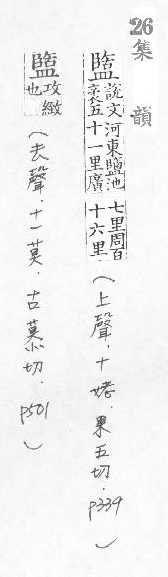 26 集韻
盬 說文河東鹽池袤五十一里廣七里周百十六里（上聲．十姥．果五切．p339）
盬 攻緻也（去聲．十一莫．古慕切．p501）